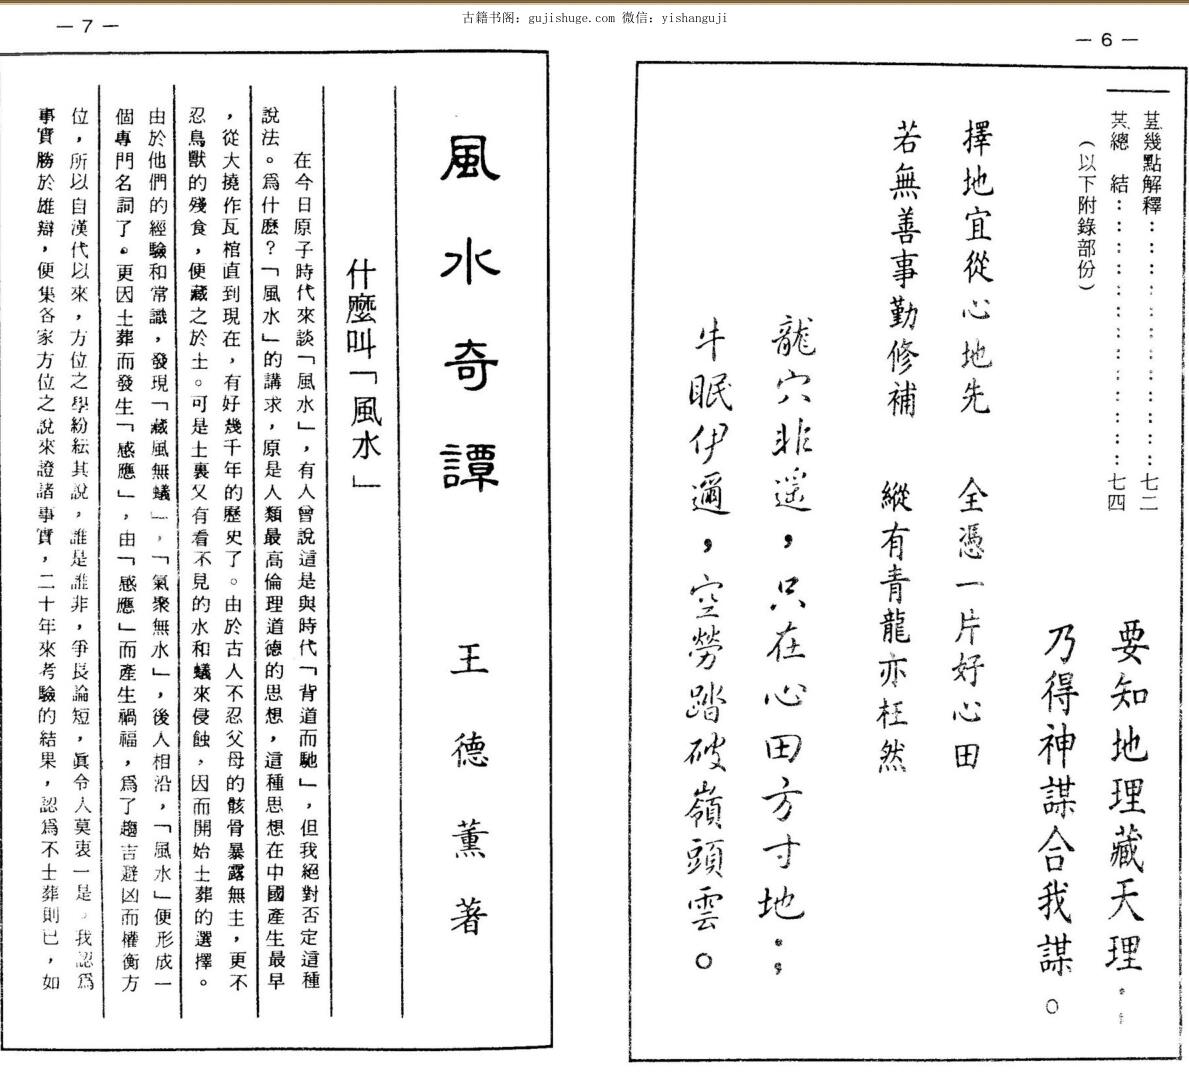 古籍书阁：gujishuge.com 微信：yishanguji
－6－
茥幾點解釋：：：：：：：：：：：七二
其總　結：：：：：：：：：：：：七四
（以下附錄部份）
要知地理藏天理；
乃得神謀合我謀。
擇地宜從心地先　全憑一片好心田
若無善事勤修補　縱有青龍亦枉然
龍穴非遙，只在心田方寸地；
牛眠伊邇，空勞踏破嶺頭雲。
－7－
風水奇譚
王德薰著
什麼叫「風水」
在今日原子時代來談「風水」，有人曾說這是與時代「背道而馳」，但我絕對否定這種
說法。爲什麽？「風水」的講求，原是人類最高倫理道德的思想，這種思想在中國產生最早
，從大撓作瓦棺直到現在，有好幾千年的歷史了。由於古人不忍父母的骸骨暴露無主，更不
忍鳥獸的殘食，便藏之於土。可是土裏又有看不見的水和蟻來侵蝕，因而開始土葬的選擇。
由於他們的經驗和常識，發現「藏風無蟻」，「氣聚無水」，後人相沿，「風水」便形成一
個專門名詞了。更因土葬而發生「感應」，由「感應」而產生禍福，爲了趨吉避凶而權衡方
位，所以自漢代以來，方位之學紛紜其說，誰是誰非，爭長論短，眞令人莫衷一是。我認爲
事實勝於雄辯，便集各家方位之說來證諸事實，二十年來考驗的結果，認爲不土葬則已，如